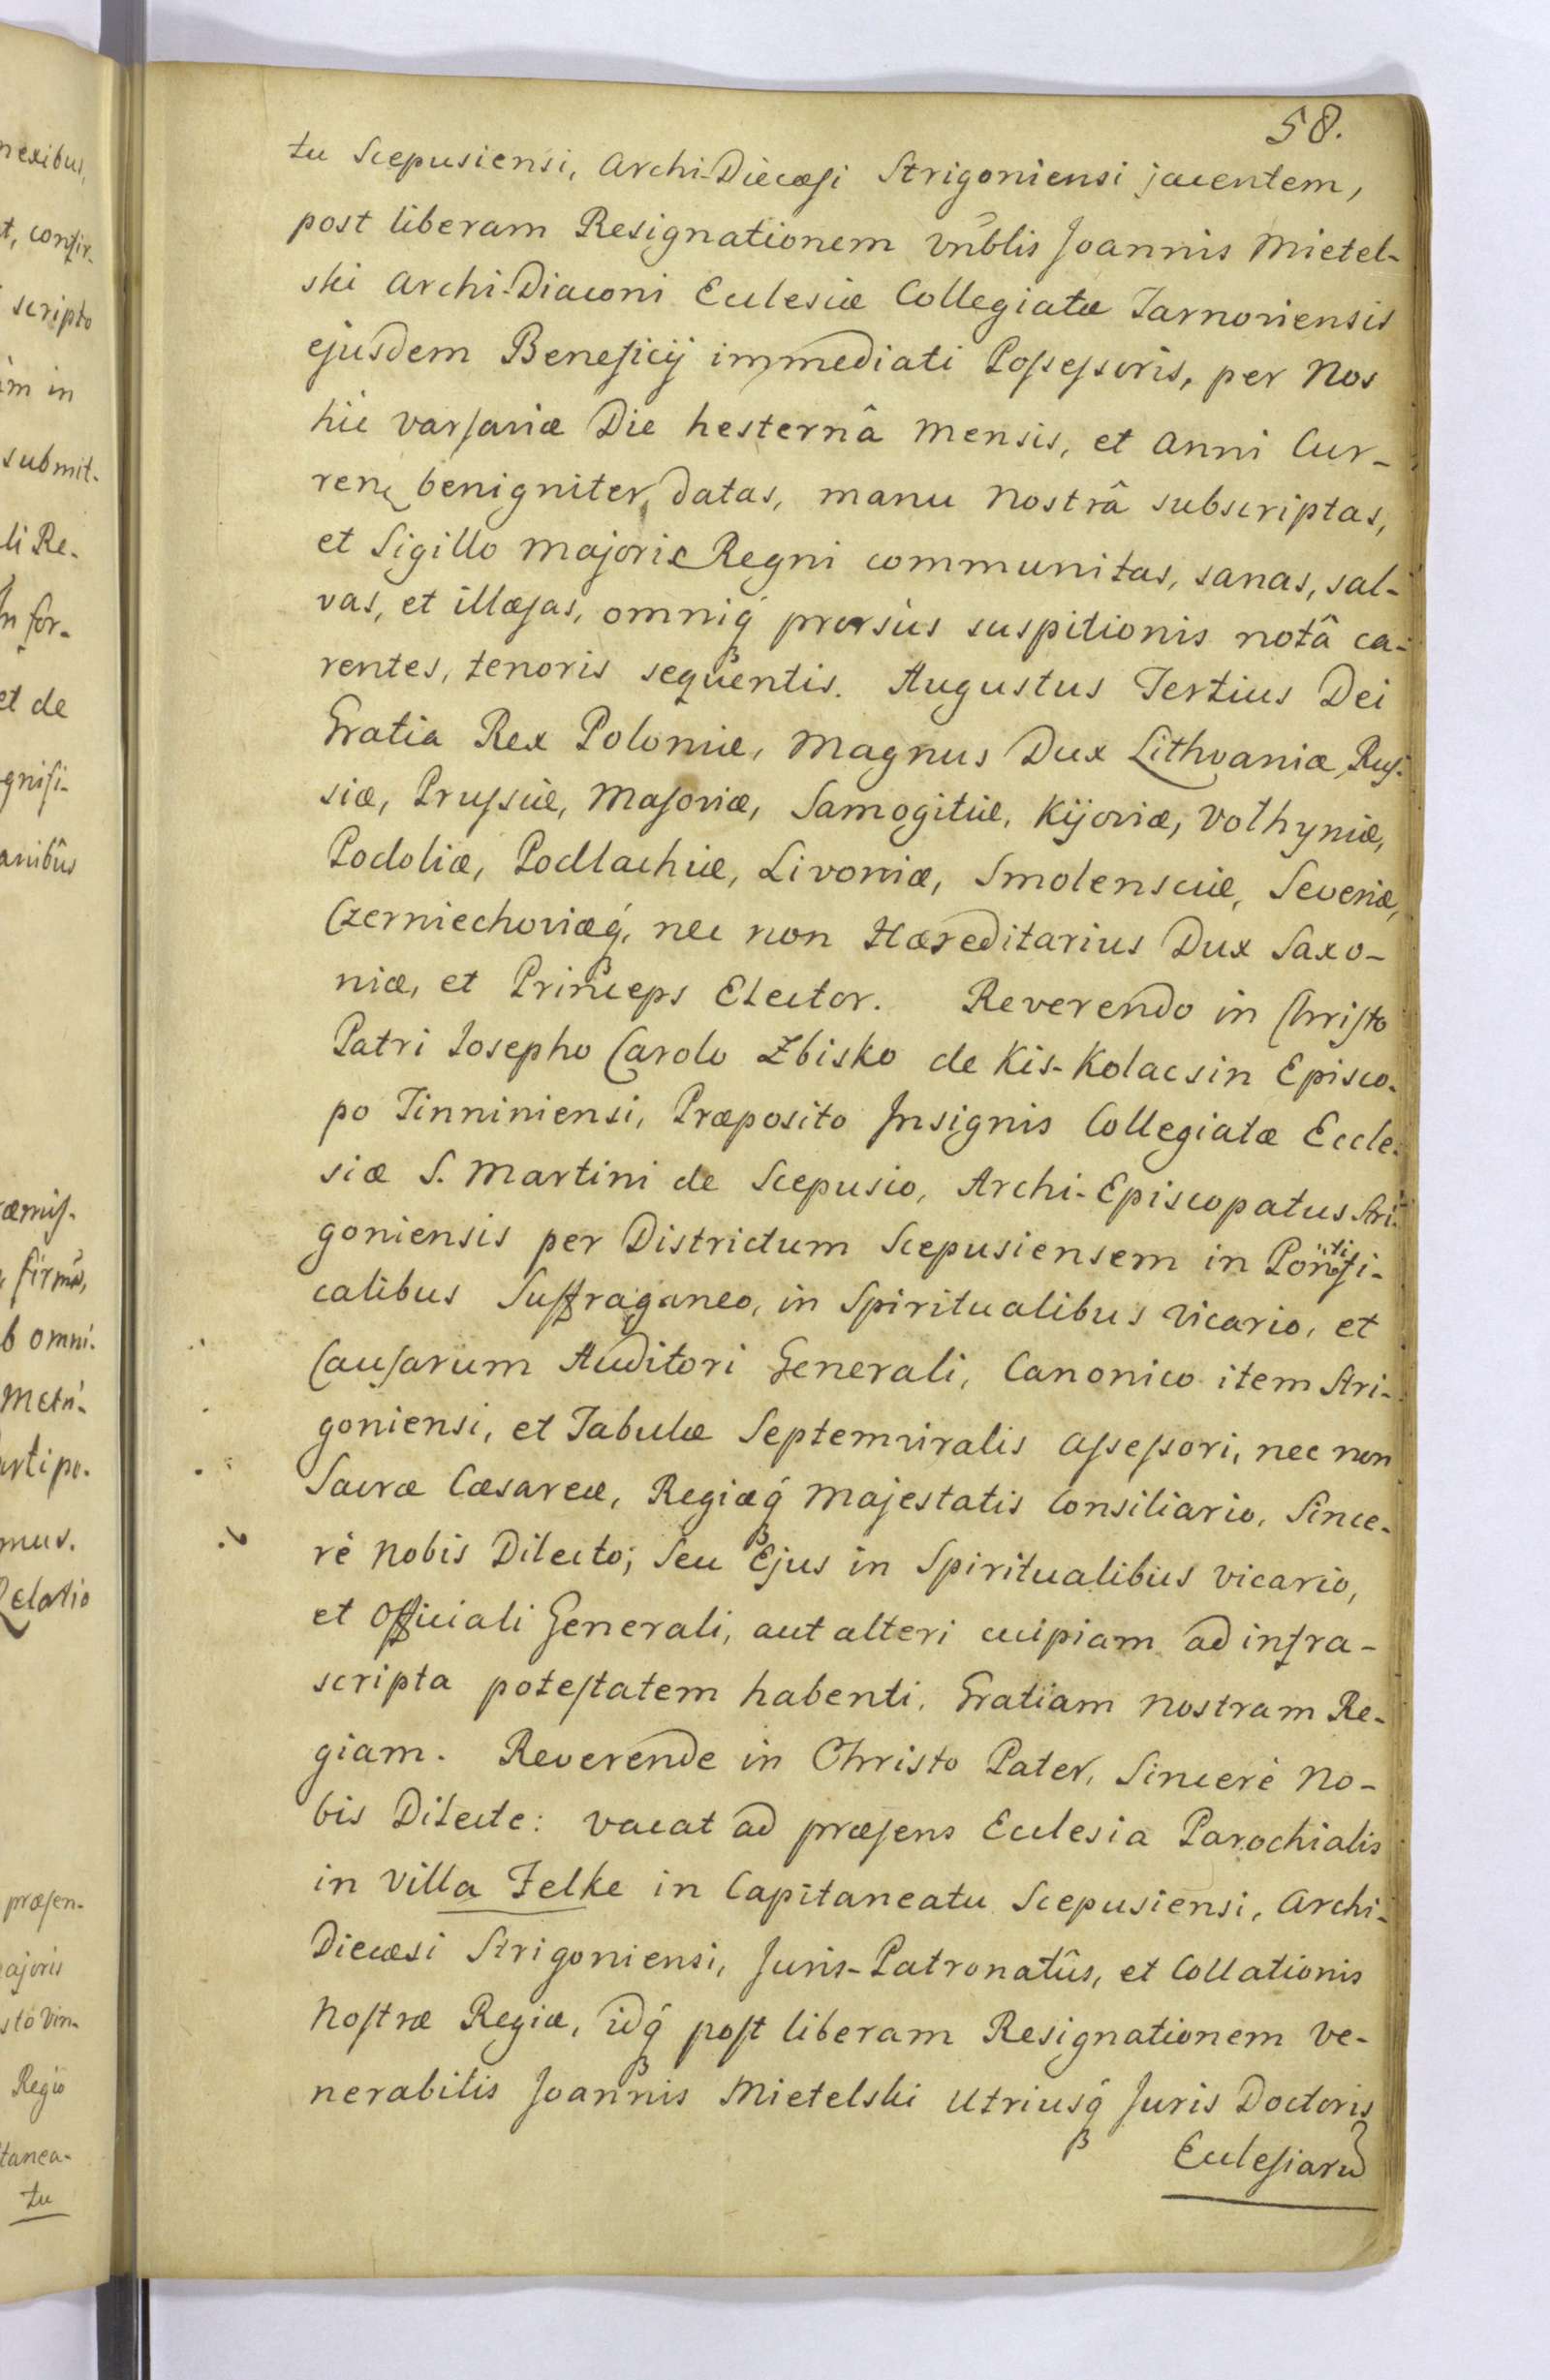 58.
tu Scepusiensi, Archi-Diecæsi Strigoniensi jacentem,
post liberam Resignationem vñblis Joannis Mietel-
ski Archi-Diaconi Ecclesiæ Collegiatæ Tarnoviensis
ejusdem Beneficij immediati Possessoris, per Nos
hic Varsaviæ Die hesternâ Mensis, et Anni Cur-
ren benigniter datas, manu Nostrâ subscriptas,
et Sigillo Majoris Regni communitas, sanas, sal-
vas, et illæsas, omniq́ prorsùs suspitionis notâ ca-
rentes, tenoris sequentis. Augustus Tertius Dei
Gratia Rex Poloniæ, Magnus Dux Lithvaniæ, Rus-
siæ, Prussiæ, Masoviæ, Samogitiæ, Kijoviæ, Volhyniæ,
Podoliæ, Podlachiæ, Livoniæ, Smolensciæ, Severiæ,
Czerniechoviæq́, nec non Hæreditarius Dux Saxo-
niæ, et Princeps Elector. Reverendo in Christo
Patri Iosepho Carolo Zbisko de Kis-Kolacsin Episco-
po Tinniniensi, Præposito Insignis Collegiatæ Eccle-
siæ S. Martini de Scepusio, Archi-Episcopatus Stri-
goniensis per Districtum Scepusiensem in Pontifi-
calibus Suffraganeo, in Spiritualibus Vicario, et
Causarum Auditori Generali, Canonico item Stri-
goniensi, et Tabulæ Septemviralis Assessori, nec non
Sacræ Cæsareæ, Regiæq́ Majestatis Consiliario, Since-
rè Nobis Dilecto; Seu Ejus in Spiritualibus Vicario,
et Officiali Generali, aut alteri cuipiam ad infra-
scripta potestatem habenti, Gratiam Nostram Re-
giam. Reverende in Christo Pater, Sincerè No-
bis Dilecte: Vacat ad præsens Ecclesia Parochialis
in Villa Felke in Capitaneatu Scepusiensi, Archi-
Diecæsi Strigoniensi, Juris-Patronatûs, et Collationis
Nostræ Regiæ, idq́ post liberam Resignationem Ve-
nerabilis Joannis Mietelski Utriusq́ Juris Doctoris
Ecclesiarũ